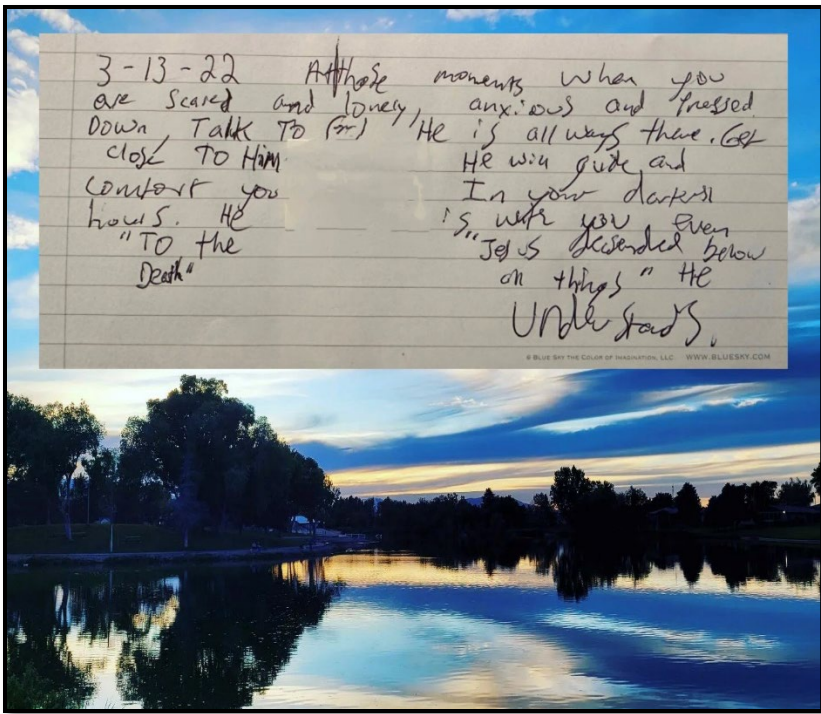 3-13-22 At those moments when you
are scared and lonely, anxious and pressed
Down, Talk To Him He is all ways there. Get
close To Him He will guide and
comfort you In your darkest
hours. He is with you even
"To the "Jesus descended below
Death" all things" He
Understands.
© BLUE SKY THE COLOR OF IMAGINATION, LLC WWW.BLUESKY.COM